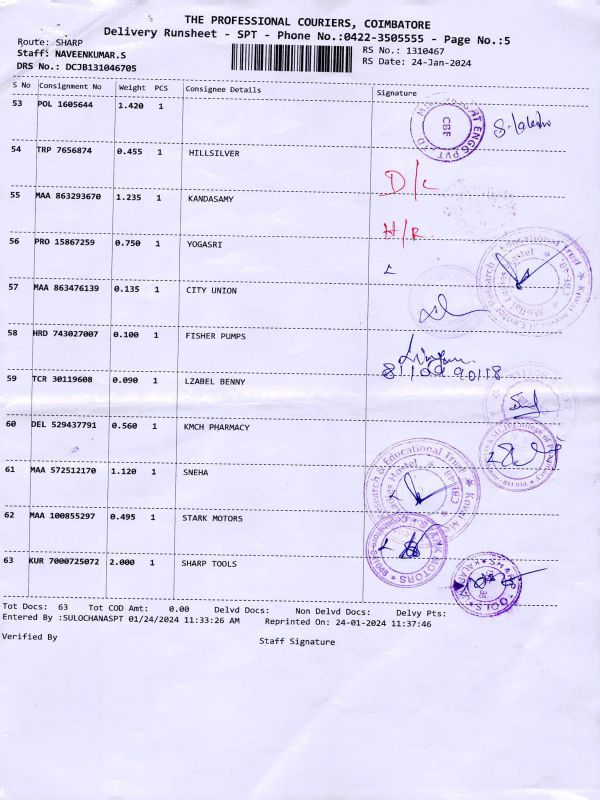 THE PROFESSIONAL COURIERS, COIMBATORE
Delivery Runsheet - SPT - Phone No.:0422-3505555 - Page No.:5
Route: SHARP
Staff: NAVEENKUMAR.S
DRS No.: DCJB131046705
RS No.: 1310467
RS Date: 24-Jan-2024
S No Consignment No Weight PCS Consignee Details Signature
53 POL 1605644 1.420 1
CBE
54 TRP 7656874 0.455 1 HILLSILVER
D/C
55 MAA 863293670 1.235 1 KANDASAMY
H/R
56 PRO 15867259 0.750 1 YOGASRI
57 MAA 863476139 0.135 1 CITY UNION
58 HRD 743027007 0.100 1 FISHER PUMPS
59 TCR 30119608 0.090 1 LZABEL BENNY
60 DEL 529437791 0.560 1 KMCH PHARMACY
61 MAA 572512170 1.120 1 SNEHA
62 MAA 100855297 0.495 1 STARK MOTORS
63 KUR 7000725072 2.000 1 SHARP TOOLS
Tot Docs: 63 Tot COD Amt: 0.00 Delvd Docs: Non Delvd Docs: Delvy Pts:
Entered By :SULOCHANASPT 01/24/2024 11:33:26 AM Reprinted On: 24-01-2024 11:37:46
Verified By Staff Signature